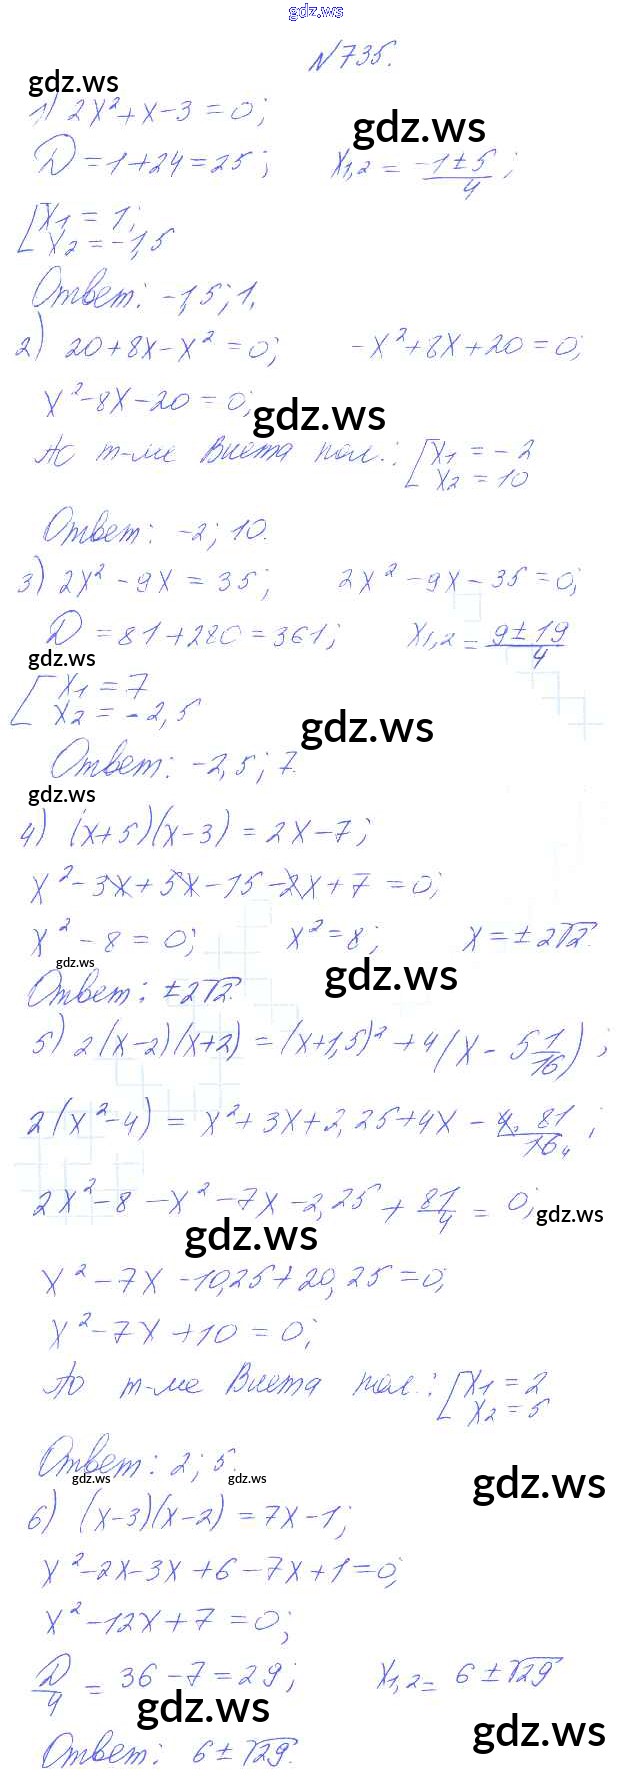 gdz.ws
№735.
gdz.ws
1) 2x²+x-3=0;
gdz.ws
D=1+24=25; x₁,₂ = (-1±5)/4;
[x₁=1;
x₂=-1,5
Ответ: -1,5; 1.
2) 20+8x-x²=0; -x²+8x+20=0;
x²-8x-20=0;
gdz.ws
По т-ме Виета пол.: [x₁=-2
x₂=10
Ответ: -2; 10.
3) 2x²-9x=35; 2x²-9x-35=0;
D=81+280=361; x₁,₂ = (9±19)/4
gdz.ws
[x₁=7
x₂=-2,5
gdz.ws
Ответ: -2,5; 7.
gdz.ws
4) (x+5)(x-3)=2x-7;
x²-3x+5x-15-2x+7=0;
x²-8=0; x²=8; x=±2√2.
gdz.ws
gdz.ws
Ответ: ±2√2.
5) 2(x-2)(x+2)=(x+1,5)²+4(x-5 1/16);
2(x²-4)=x²+3x+2,25+4x-4·81/16₄;
2x²-8-x²-7x-2,25+81/4=0;
gdz.ws
gdz.ws
x²-7x-10,25+20,25=0;
x²-7x+10=0;
По т-ме Виета пол.: [x₁=2
x₂=5
Ответ: 2; 5.
gdz.ws
gdz.ws
gdz.ws
6) (x-3)(x-2)=7x-1;
x²-2x-3x+6-7x+1=0;
x²-12x+7=0;
D/4=36-7=29; x₁,₂=6±√29
gdz.ws
gdz.ws
Ответ: 6±√29.